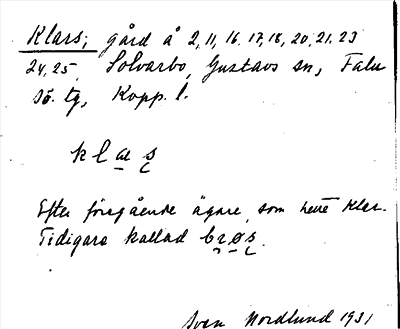 Klars, gård å 2, 11, 16. 17, 18, 20, 21. 23
24, 25, Solvarbo, Gustavs sn, Falu
sö. tg, Kopp. l.
k l æ s
Efter föregående ägare som hette Klas.
Tidigare kallad brøs.
Sven Nordlund 1931